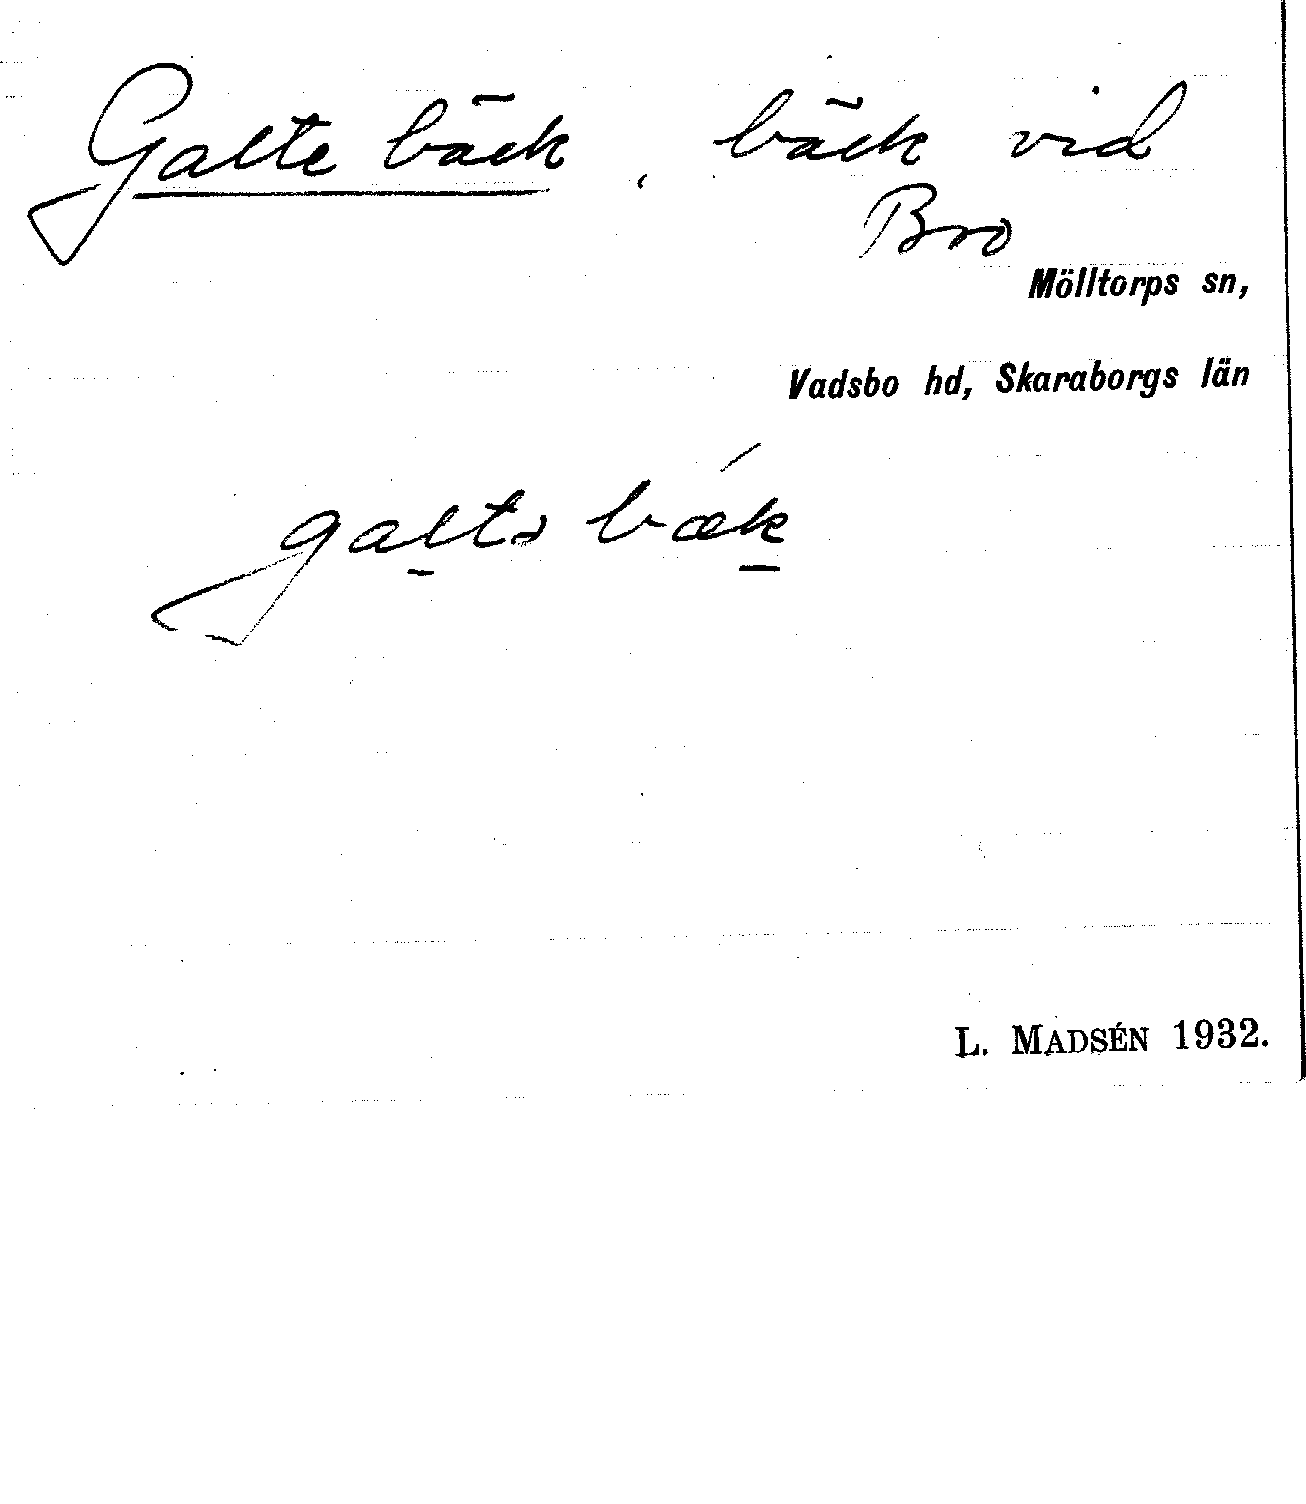 Galte bäck, bäck vid
Bro
Mölltorps sn,
Vadsbo hd, Skaraborgs län
galtə bǽk
L. MADSÉN 1932.